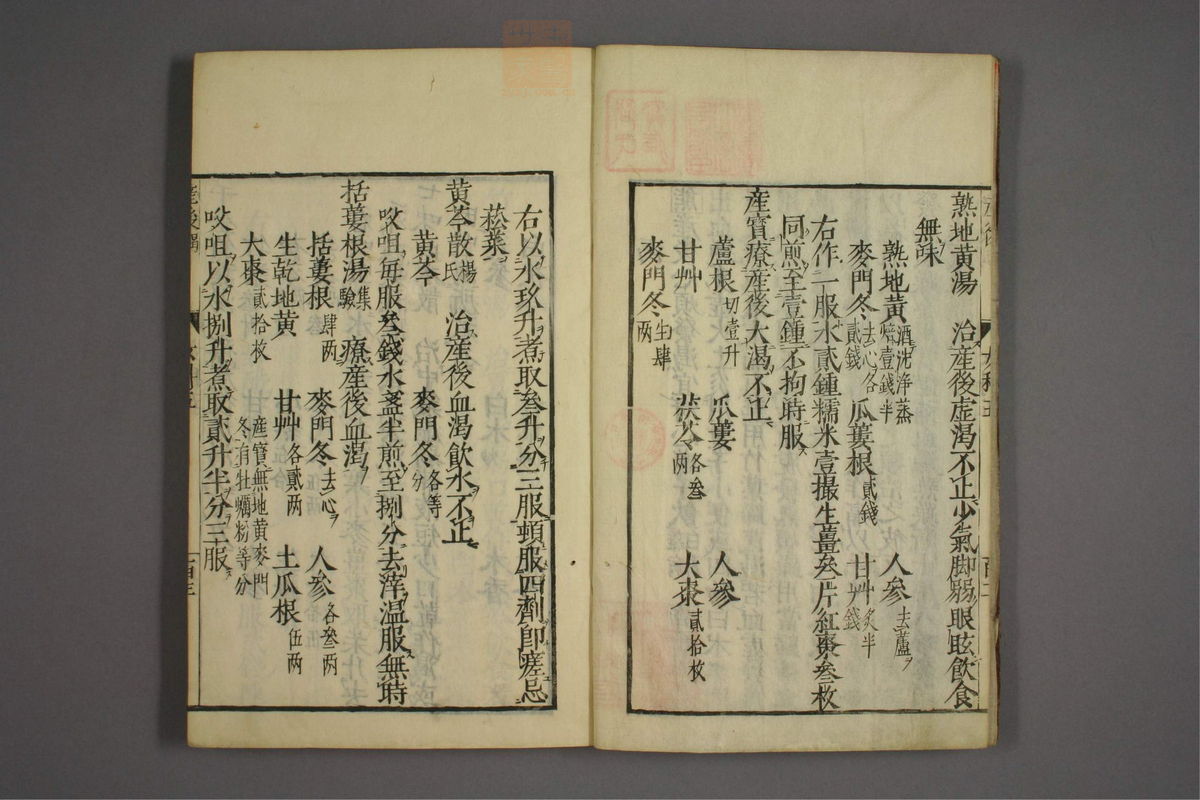 熟地黄湯　治産後虚渴不止少氣脚弱眼眩飲食
無味
熟地黄酒洗浄蒸焙壹錢半　人參去蘆
麥門冬去心各貳錢　瓜蔞根貳錢　甘艸炙半錢
右作一服水貳鍾糯米壹撮生薑叁片紅棗叁枚
同煎至壹鍾不拘時服
産寳療産後大渴不止
蘆根切壹升　瓜蔞　人參
甘艸　茯苓各叁两　大棗貳拾枚
麥門冬生肆两
右以水玖升煮取叁升分三服頓服四劑即瘥忌
菘菜
黄芩散楊氏　治産後血渴飲水不止
黄芩　麥門冬各等分
㕮咀毎服叁錢水盞半煎至捌分去滓温服無時
括蔞根湯集驗　療産後血渴
括蔞根肆两　麥門冬去心　人參各叁两
生乾地黄　甘艸各貳两　土瓜根伍两
大棗貳拾枚　産寳無地黄麥門冬有牡蠣粉等分
㕮咀以水捌升煮取貳升半分三服